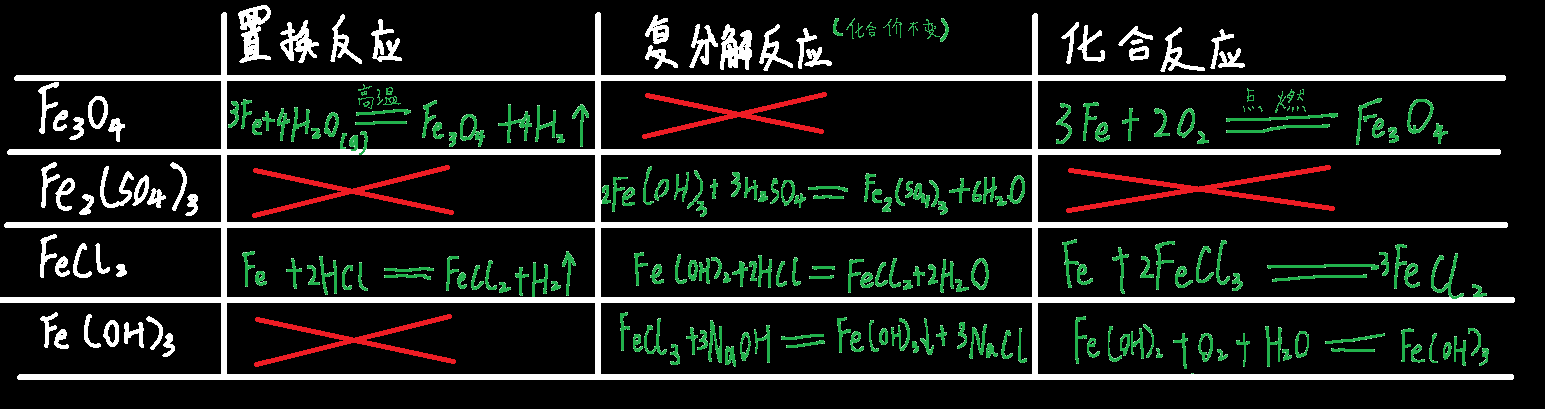 置换反应 复分解反应(化合价不变) 化合反应
Fe₃O₄ 3Fe+4H₂O(g) 高温══ Fe₃O₄+4H₂↑ 3Fe+2O₂ 点燃══ Fe₃O₄
Fe₂(SO₄)₃ 2Fe(OH)₃+3H₂SO₄══Fe₂(SO₄)₃+6H₂O
FeCl₂ Fe+2HCl══FeCl₂+H₂↑ Fe(OH)₂+2HCl=FeCl₂+2H₂O Fe+2FeCl₃══3FeCl₂
Fe(OH)₃ FeCl₃+3NaOH══Fe(OH)₃↓+3NaCl Fe(OH)₂+O₂+H₂O══Fe(OH)₃